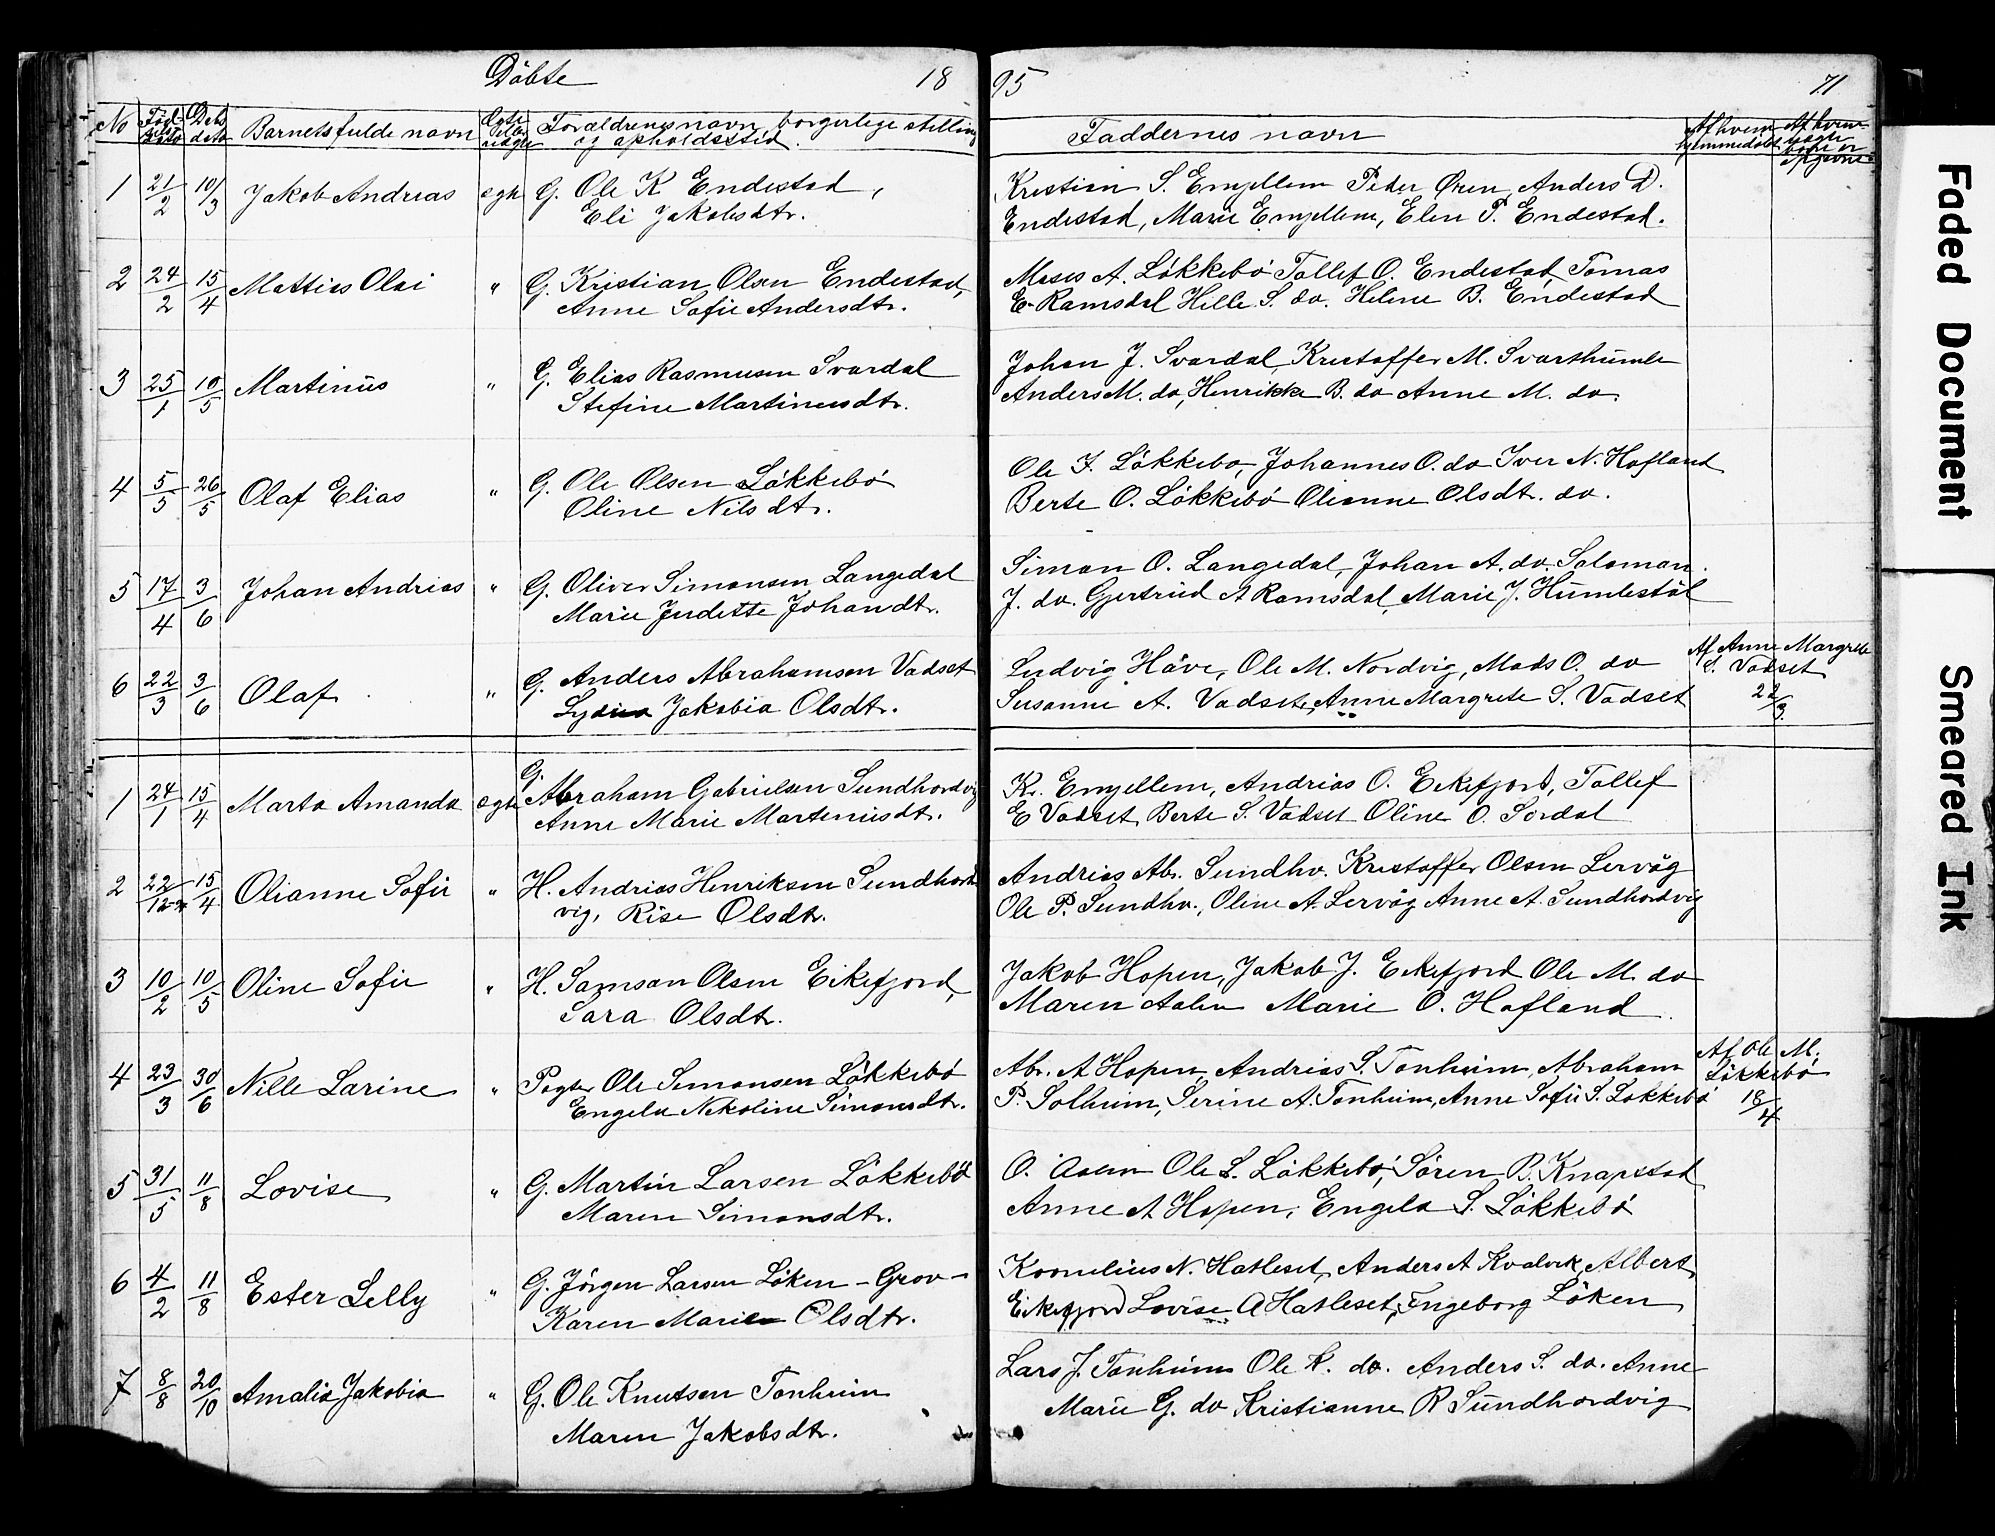 Döbte 18 95 71
No Födselsdato Dåbsdato Barnets fulde navn Egte eller uegte Forældrenes navn, borgerlige stilling og opholdssted. Faddernes navn Af hvem hjemmedöbt
1 21/2 10/3 Jakob Andreas egte G. Ole K Endestad, Kristian S. Emjellem Peder Øren, Anders D.
Eli Jakobsdtr. Endestad, Marie Emjellem, Elen P. Endestad.
2 24/2 15/4 Mattias Olai " G. Kristian Olsen Endestad, Moses A. Lökkebö Tollef O. Endestad, Tomas
Anne Sofie Andersdtr. E. Ramsdal Hille S. do. Helene B. Endestad
3 25/1 10/5 Martinus " G. Elias Rasmusen Svardal Johan J. Svardal, Kristoffer M. Svarthumle
Stefine Martinusdtr. Anders M. do, Henrikke B. do Anne M. do.
4 5/5 26/5 Olaf Elias " G. Ole Olsen Lökkebö Ole I. Lökkebo, Johannes O. do Iver N. Hofland
Oline Nilsdtr. Berte O. Lökkebö Olianne Olsdt. do.
5 17/4 3/6 Johan Andreas " G. Oliver Simonsen Langedal Simon O. Langedal, Johan A. do. Salomon
Marie Judette Johandt. J. do. Gjertrud A Ramsdal, Marie J. Humlestöl
6 22/3 3/6 Olaf. " G. Anders Abrahamsen Vadset Ludvig Håve, Ole M. Nordvig, Mads O. do Af Anne Margrete
Lydia Jakobia Olsdt. Susanne A. Vadset, Anne Margrete S. Vadset S. Vadset 22/3.
1 24/1 15/4 Marta Amanda egte G. Abraham Gabrielsen Sundhordvig Kr. Emjellem, Andrias O. Eikefjord, Tollef
Anne Marie Martinusdt. E Vadset, Berte S. Vadset Oline O. Sördal
2 22/12 15/4 Olianne Sofie " H. Andrias Henriksen Sundhord Andrias Abr. Sundhv. Kristoffer Olsen Lervåg
vig, Rise Olsdtr. Ole P. Sundhv., Oline A. Lervåg Anne A. Sundhordvig
3 10/2 10/5 Oline Sofie " H. Samson Olsen Eikefjord, Jakob Hopen, Jakob J. Eikefjord Ole M. do
Sara Olsdt. Maren Aalen Marie O. Hofland.
4 23/3 30/6 Nille Larine " Pagter Ole Simonsen Lökkebö Abr. A Hopen, Andrias S. Tonheim, Abraham Af Ole M.
Engela Nikoline Simonsdtr. P. Solheim, Serine A. Tonheim, Anne Sofie S. Lökkebö Lökkebö 18/4
5 31/5 11/8 Lovise " G. Martin Larsen Lökkebö O. Aalen Ole L. Lökkebö, Sören B. Knapstad
Maren Simonsdtr. Anne A Hopen, Engela S. Lökkebö
6 4/2 11/8 Ester Lelly " G. Jörgen Larsen Löken – Grov – Kornelius N. Hatleset, Anders A Kvalvik, Albert
Karen Marie Olsdtr. Eikefjord Lovise A Hatleset, Ingeborg Löken
7 8/8 20/10 Amalia Jakobia " G. Ole Knutsen Tonheim Lars J. Tonheim Ole K. do. Anders S. do. Anne
Maren Jakobsdtr. Marie G. do Kristianne R Sundhordvig
Faded Document
Smeared Ink